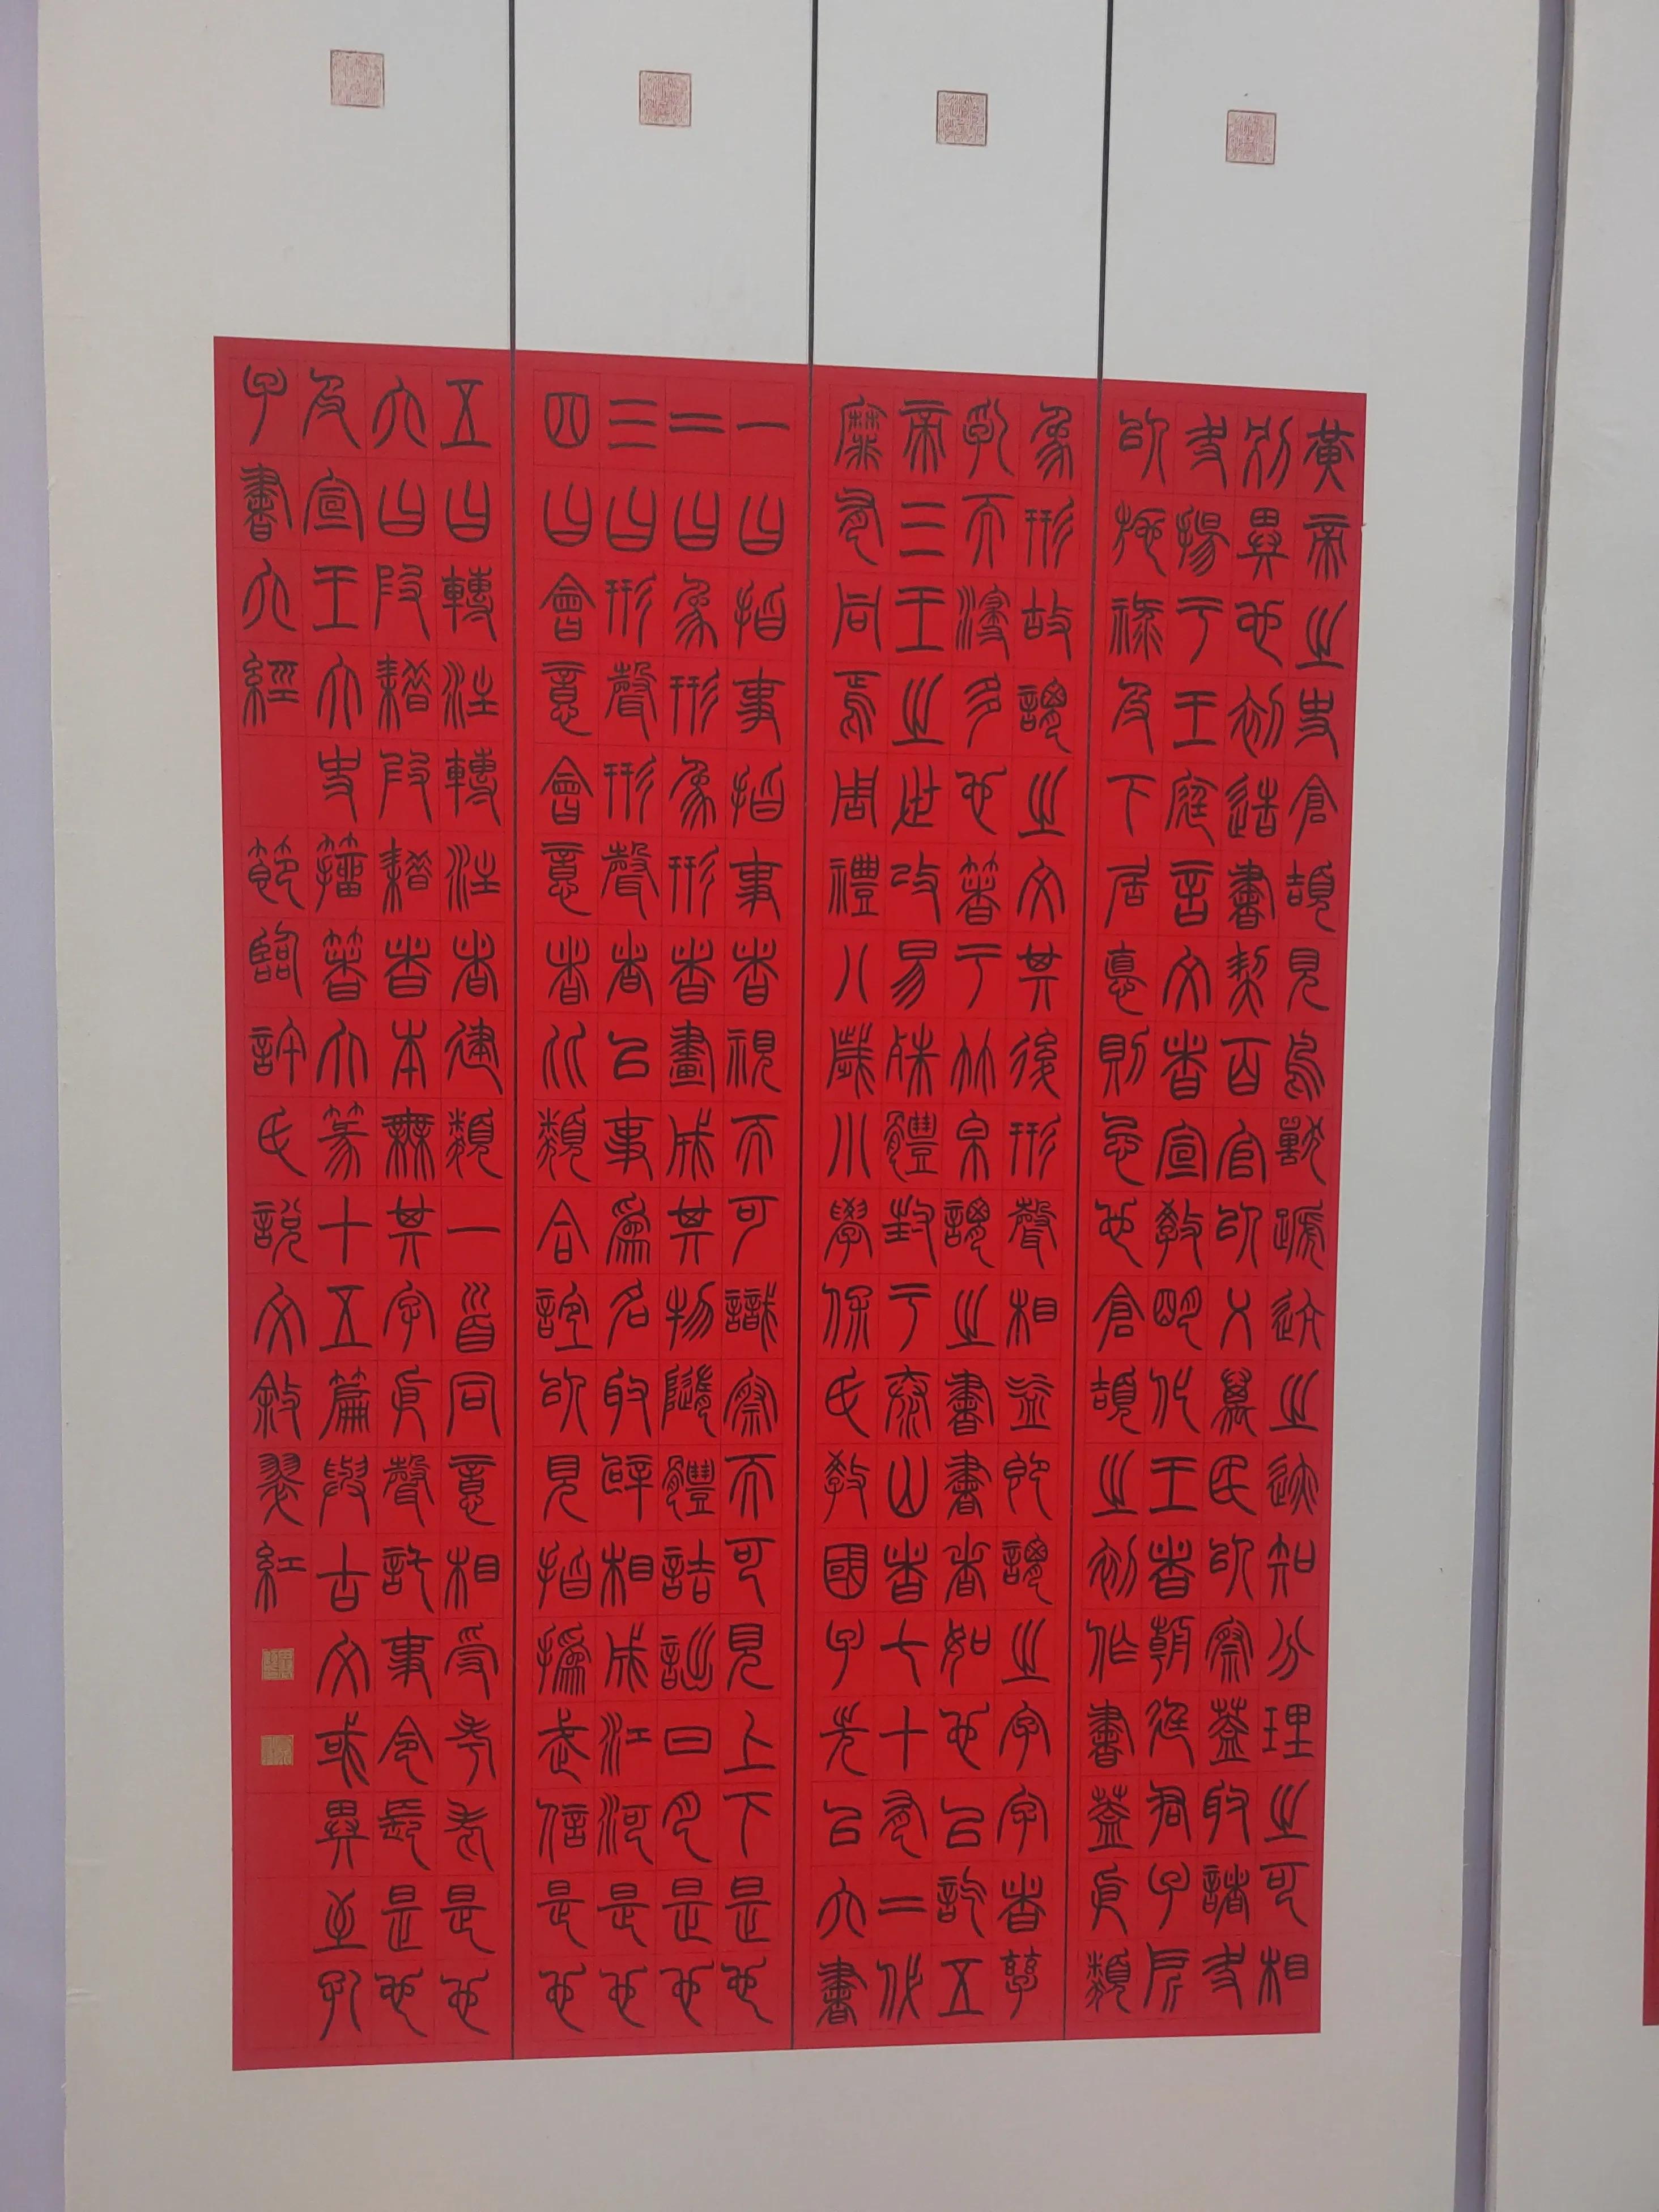 黃帝之史倉頡見鳥獸蹏迒之迹知分理之可相
別異也初造書契百官以乂萬民以察蓋取諸夬
夬揚于王庭言文者宣教明化王者朝廷君子所
以施祿及下居悳則忌也倉頡之初作書蓋依類
象形故謂之文其後形聲相益即謂之字字者孳
乳而浸多也箸于竹帛謂之書書者如也以訖五
帝三王之世改易殊體封于泰山者七十有二代
靡有同焉周禮八歲小學保氏教國子先以六書
一曰指事指事者視而可識察而可見上下是也
二曰象形象形者畫成其物隨體詰詘日月是也
三曰形聲形聲者以事爲名取譬相成江河是也
四曰會意會意者比類合誼以見指撝武信是也
五曰轉注轉注者建類一首同意相受考老是也
六曰叚耤叚耤者本無其字依聲託事令長是也
及宣王大史籀箸大篆十五篇與古文或異至孔
子書六經 節臨許氏說文敘翠紅